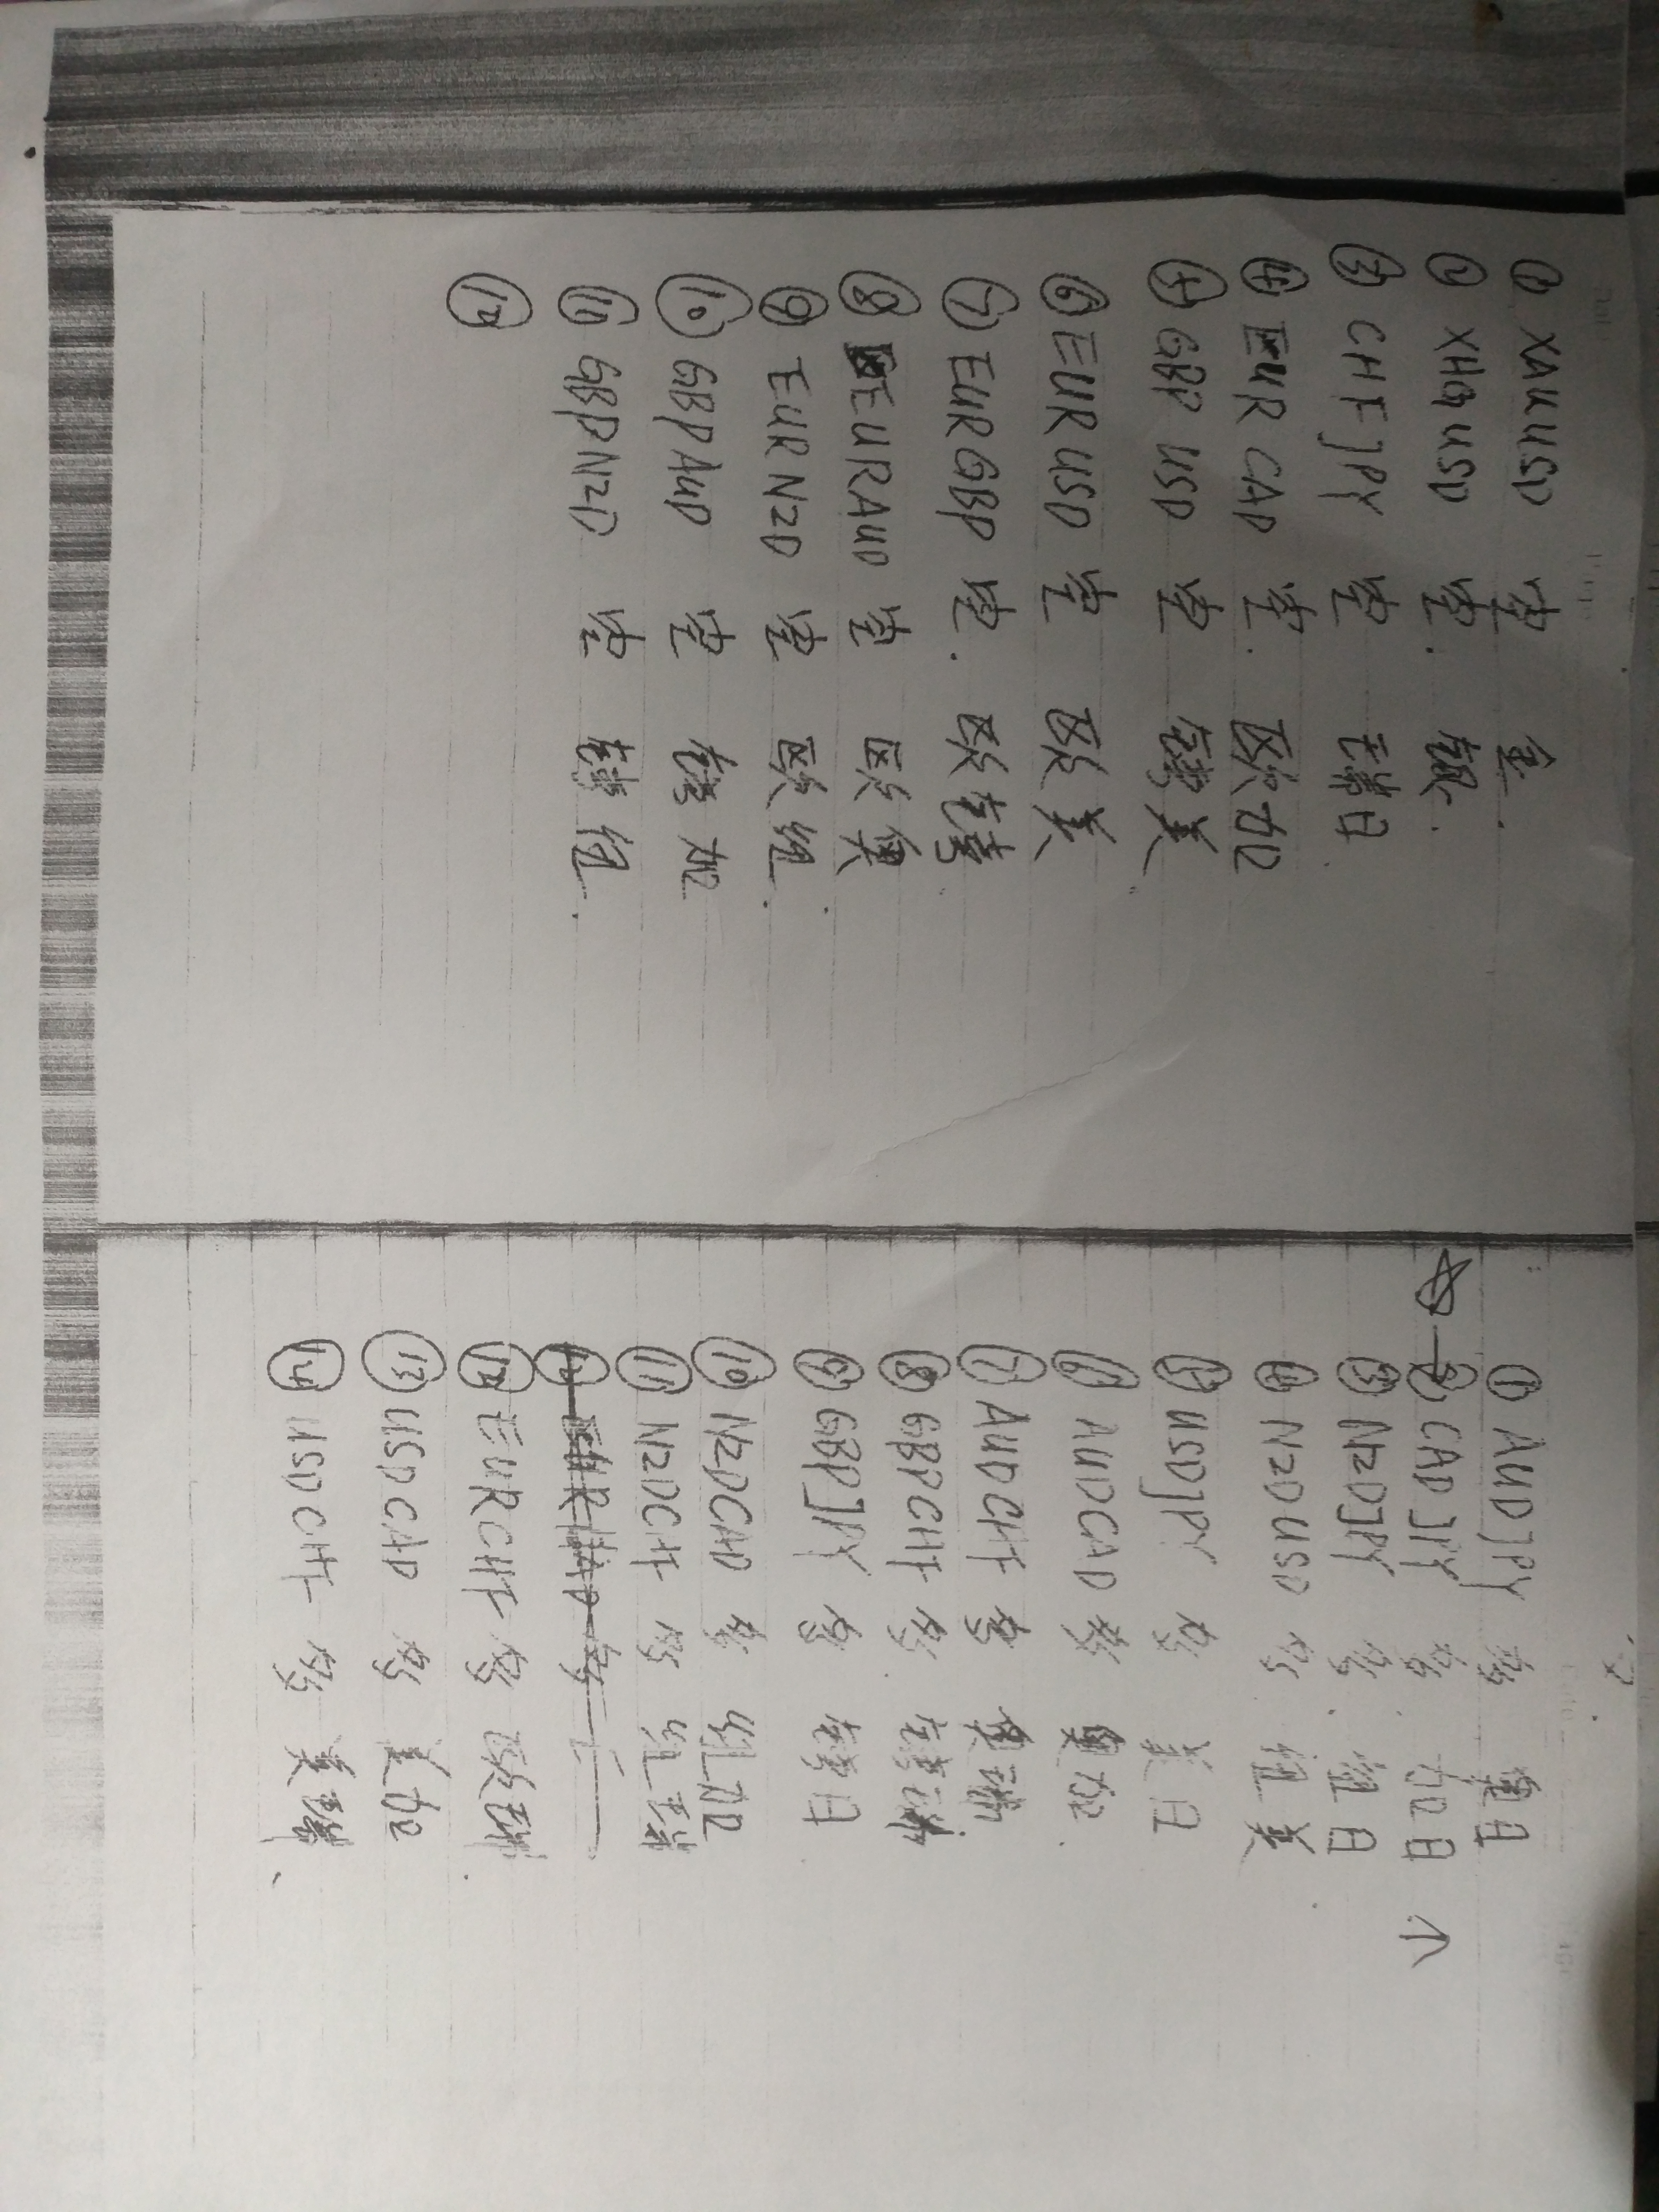 ① XAUUSD 空 金.
② XAGUSD 空. 银.
③ CHFJPY 空 瑞日
④ EURCAD 空. 欧加
⑤ GBPUSD 空 镑美
⑥ EURUSD 空 欧美
⑦ EURGBP 空. 欧镑
⑧ EURAUD 空 欧澳
⑨ EURNZD 空 欧纽.
⑩ GBPAUD 空 镑加
⑪ GBPNZD 空 镑纽.
⑫
① AUDJPY 多 澳日
☆ ② CADJPY 多 加日 ↓
③ NZDJPY 多. 纽日
④ NZDUSD 多 纽美
⑤ USDJPY 多 美日
⑥ AUDCAD 多 澳加.
⑦ AUDCHF 多 澳瑞
⑧ GBPCHF 多. 镑瑞
⑨ GBPJPY 多 镑日
⑩ NZDCAD 多 纽加
⑪ NZDCHF 多 纽瑞
⑫ EURCHF 多 欧瑞
⑬ USDCAD 多 美加
⑭ USDCHF 多 美瑞.